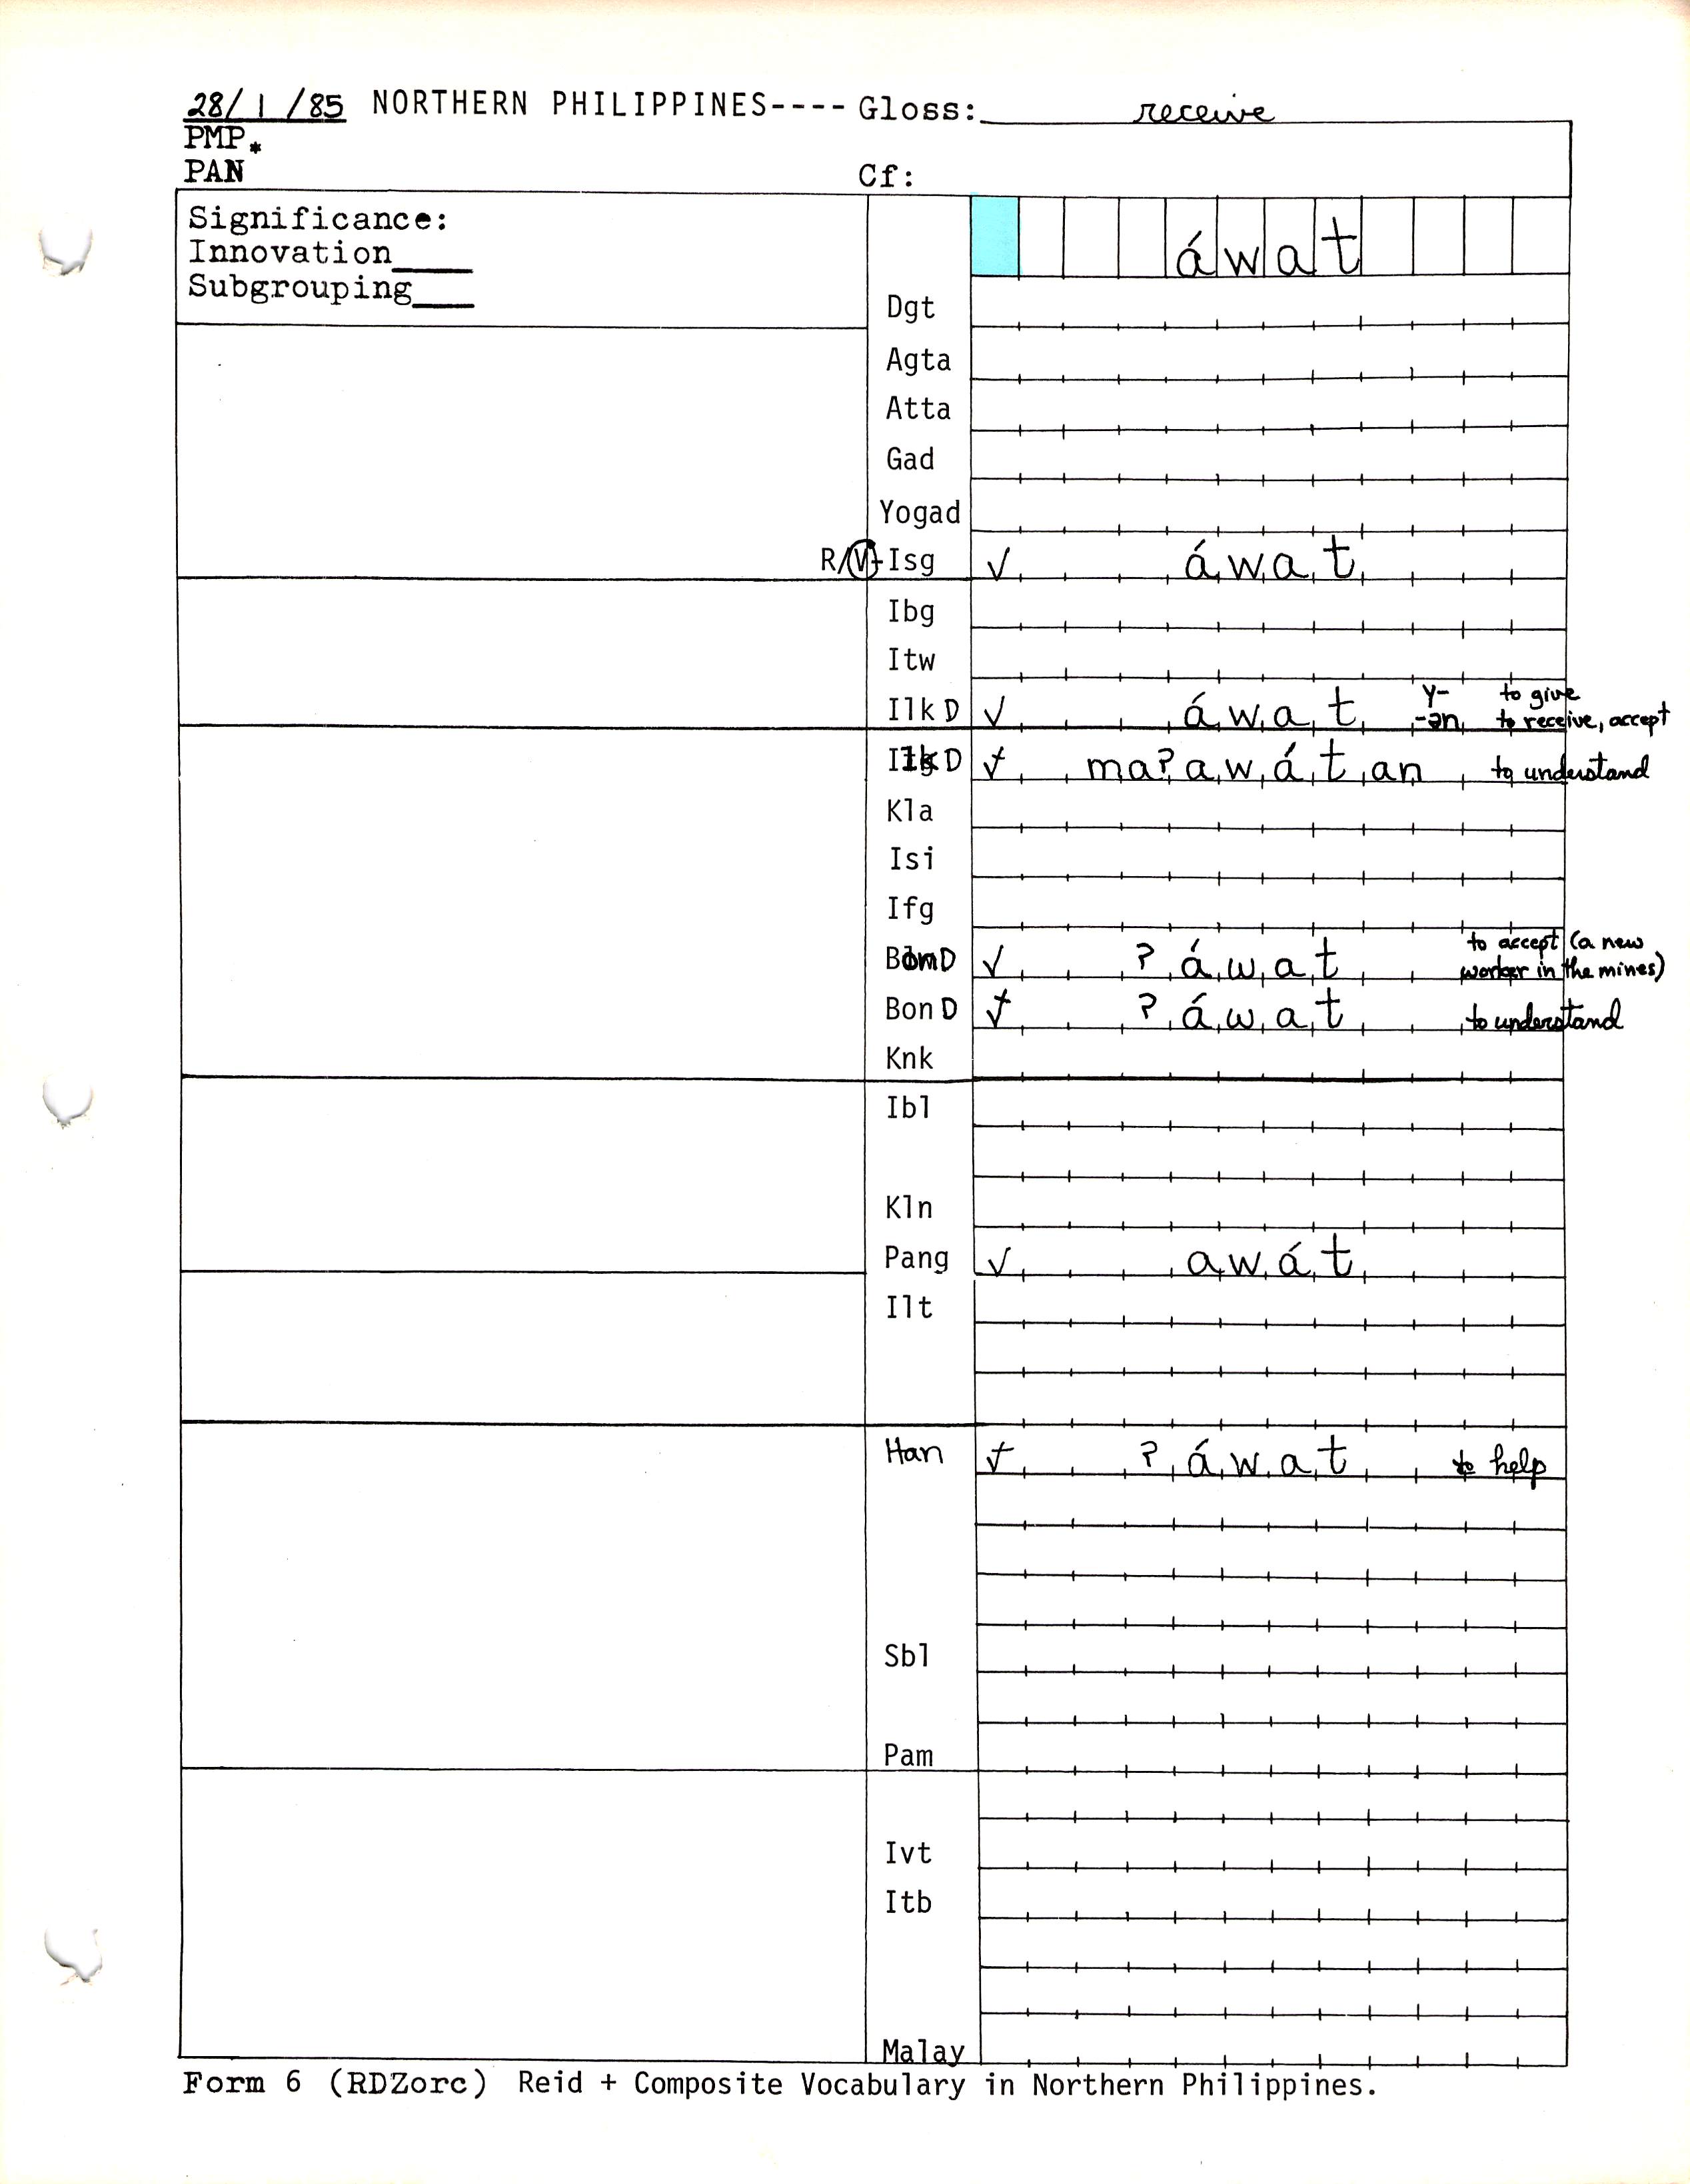 28/1/85 NORTHERN PHILIPPINES---- Gloss: receive
PMP*
PAN
Cf:
Significance:
Innovation____
Subgrouping___
áwat
Dgt
Agta
Atta
Gad
Yogad
R/V Isg ✓ áwat
Ibg
Itw
Ilk D ✓ áwat y- to give
-ən to receive, accept
Ilk D ma?awátan to understand
Kla
Isi
Ifg
Bon D ✓ ?áwat to accept (a new
worker in the mines)
Bon D ?áwat to understand
Knk
Ibl
Kln
Pang ✓ awát
Ilt
Han ?áwat to help
Sbl
Pam
Ivt
Itb
Malay
Form 6 (RDZorc) Reid + Composite Vocabulary in Northern Philippines.